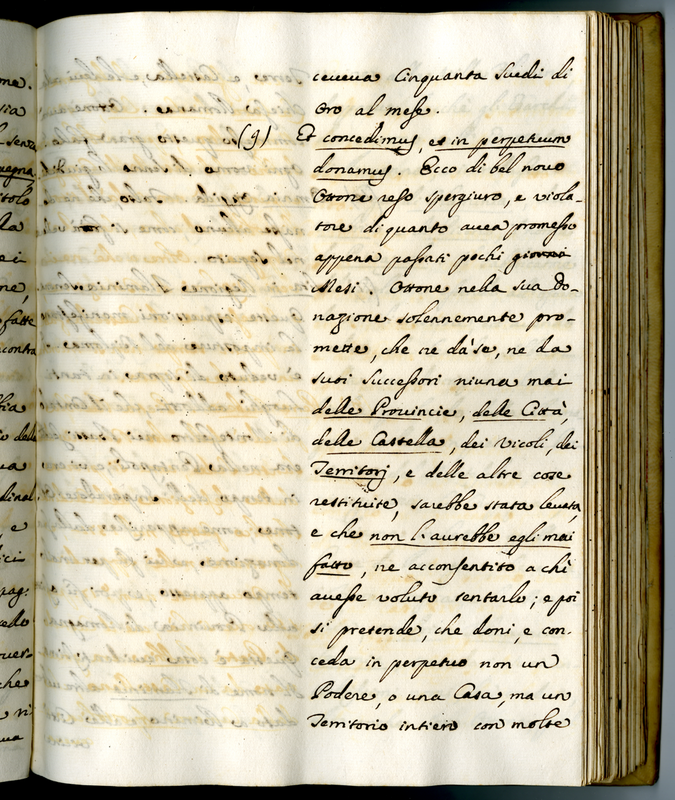 me.
sia
senza
uegna
itolo
la
e i
ne,
fatte
contra
ia
delle
ua
dinal
, e
ici
pag:
ello
uer-
che
ri
ua
ceveva Cinquanta Scudi di
Oro al mese.
(g) Et concedimus, et in perpetuum
donamus. Ecco di bel novo
Ottone reso spergiuro, e viola-
tore di quanto avea promesso
appena passati pochi giorni
Mesi. Ottone nella sua Do-
nazione solennemente pro-
mette, che ne da se, ne da
suoi Successori niuna mai
delle Provincie, delle Città,
delle Castella, dei Vicoli, dei
Territorj, e delle altre cose
restituite, sarebbe stata levata,
e che non l'aurebbe egli mai
fatto, ne acconsentito a chi
avesse voluto tentarlo; e poi
si pretende, che doni, e con-
ceda in perpetuo non un
Podere, o una Casa, ma un
Territorio intiero con molte